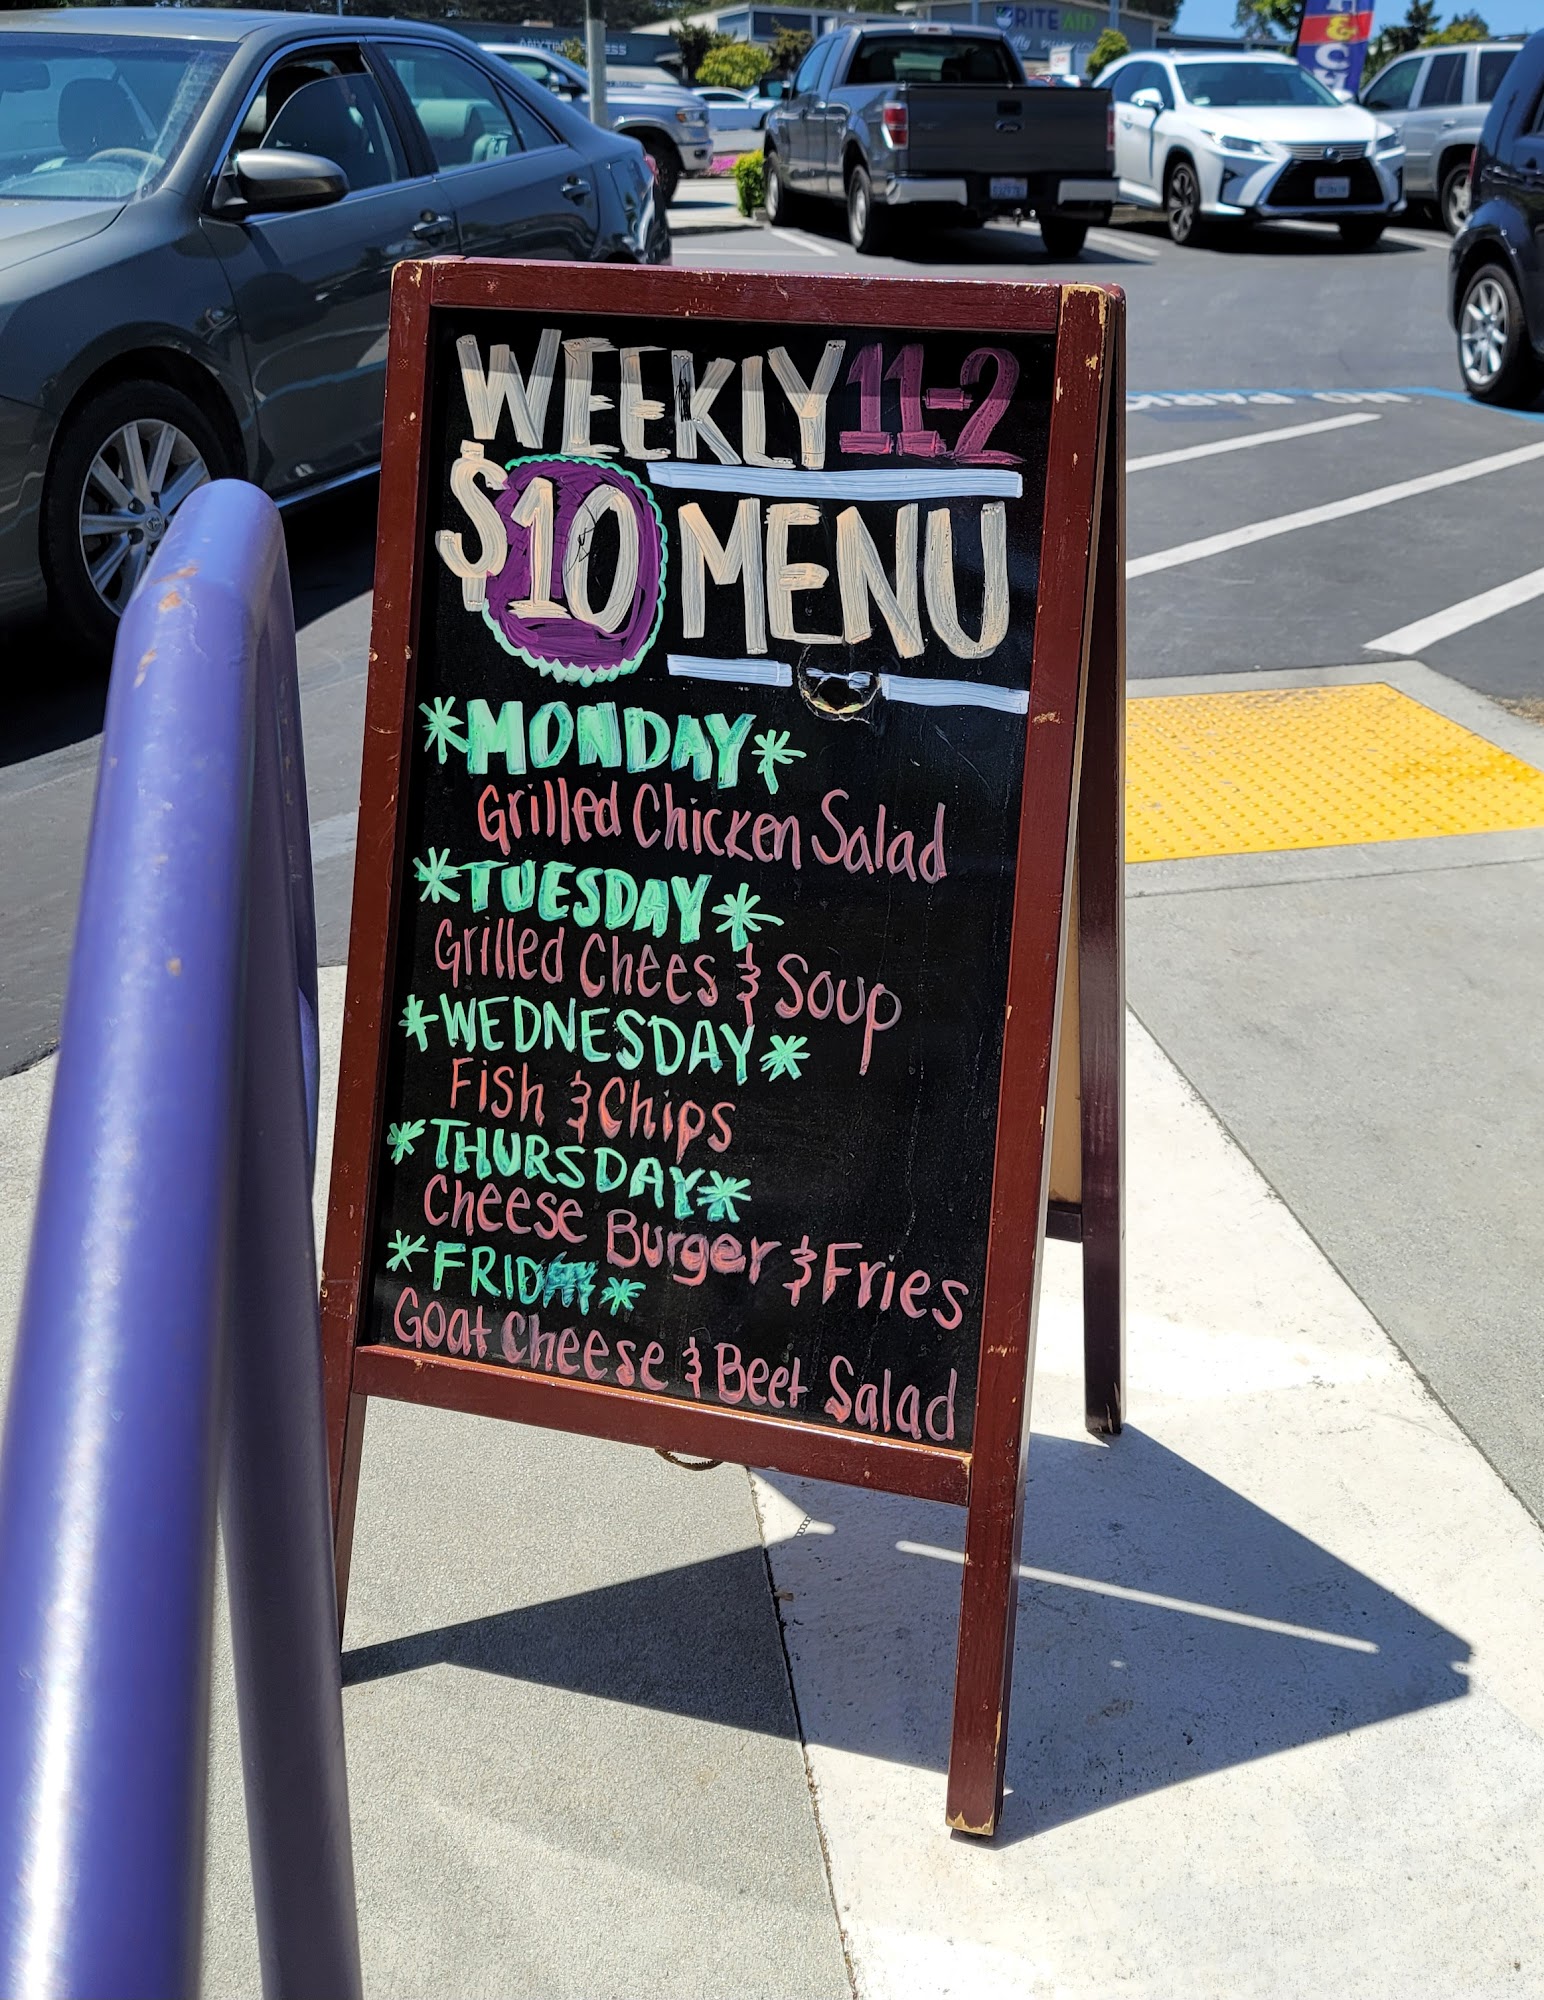 RITE AID
WEEKLY 11-2
$10 MENU
*MONDAY*
Grilled Chicken Salad
*TUESDAY*
Grilled Chees & Soup
*WEDNESDAY*
Fish & Chips
*THURSDAY*
Cheese Burger & Fries
*FRIDAY*
Goat Cheese & Beet Salad
NO PARK